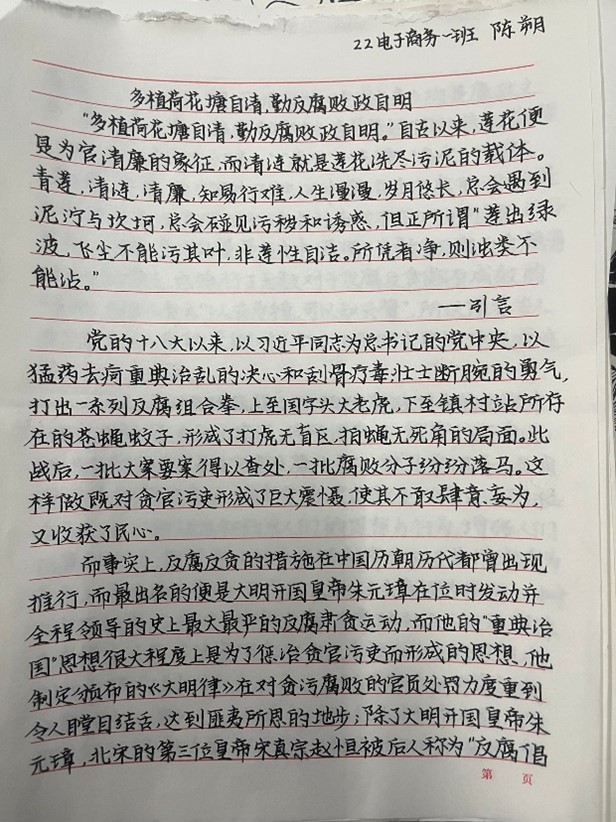 22电子商务一班 陈朔
多植荷花塘自清,勤反腐败政自明
“多植荷花塘自清,勤反腐败政自明。”自古以来,莲花便
是为官清廉的象征,而清涟就是莲花洗尽污泥的载体。
青莲,清涟,清廉,知易行难,人生漫漫,岁月悠长,总会遇到
泥泞与坎坷,总会碰见污秽和诱惑,但正所谓“莲出绿
波,飞尘不能污其叶,非莲性自洁。所凭者净,则浊类不
能沾。”
——引言
党的十八大以来,以习近平同志为总书记的党中央,以
猛药去疴重典治乱的决心和刮骨疗毒壮士断腕的勇气,
打出一系列反腐组合拳,上至国字头大老虎,下至镇村站所存
在的苍蝇蚊子,形成了打虎无盲区,拍蝇无死角的局面。此
战后,一批大案要案得以查处,一批腐败分子纷纷落马。这
样做既对贪官污吏形成了巨大震慑,使其不敢肆意妄为,
又收获了民心。
而事实上,反腐反贪的措施在中国历朝历代都曾出现
推行,而最出名的便是大明开国皇帝朱元璋在位时发动并
全程领导的史上最大最严的反腐肃贪运动,而他的“重典治
国”思想很大程度上是为了惩治贪官污吏而形成的思想、他
制定颁布的《大明律》在对贪污腐败的官员处罚力度重到
令人瞠目结舌,达到匪夷所思的地步;除了大明开国皇帝朱
元璋,北宋的第三位皇帝宋真宗赵恒被后人称为“反腐倡
第 页